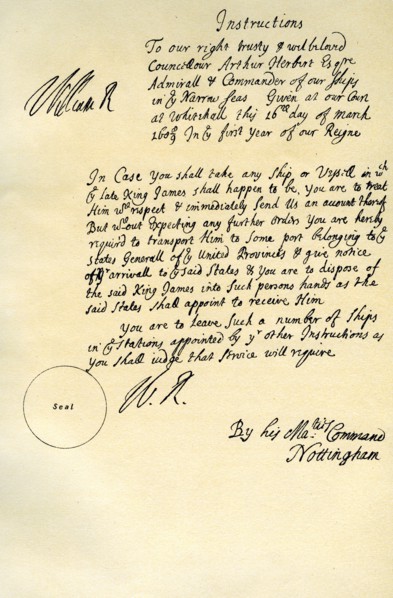 Instructions
To our right trusty & wilbiloved
Councellour Arthur Herbert Esqre
Admirall & Commander of our ships
William R
in ye Narrow seas Given at our Court
at Whitehall this 16th day of march
168 8/9 In ye first year of our Reigne
In Case You shall take any Ship or Vessill in wch
ye late King James shall happen to be, you are to treat
Him wth respect & immediately Send Us an account thereof
But wthout Expecting any further orders You are hereby
required to transport Him to Some port belonging to ye
States Generall of ye United Provinces & give notice
of yr arrivall to ye said States & You are to dispose of
the said King James into Such persons hands as the
said States Shall appoint to receive Him
You are to leave Such a number of Ships
in ye Stations appointed by yr other Instructions as
You Shall iudge that Service will require
Seal
W. R.
By his Maties Command
Nottingham